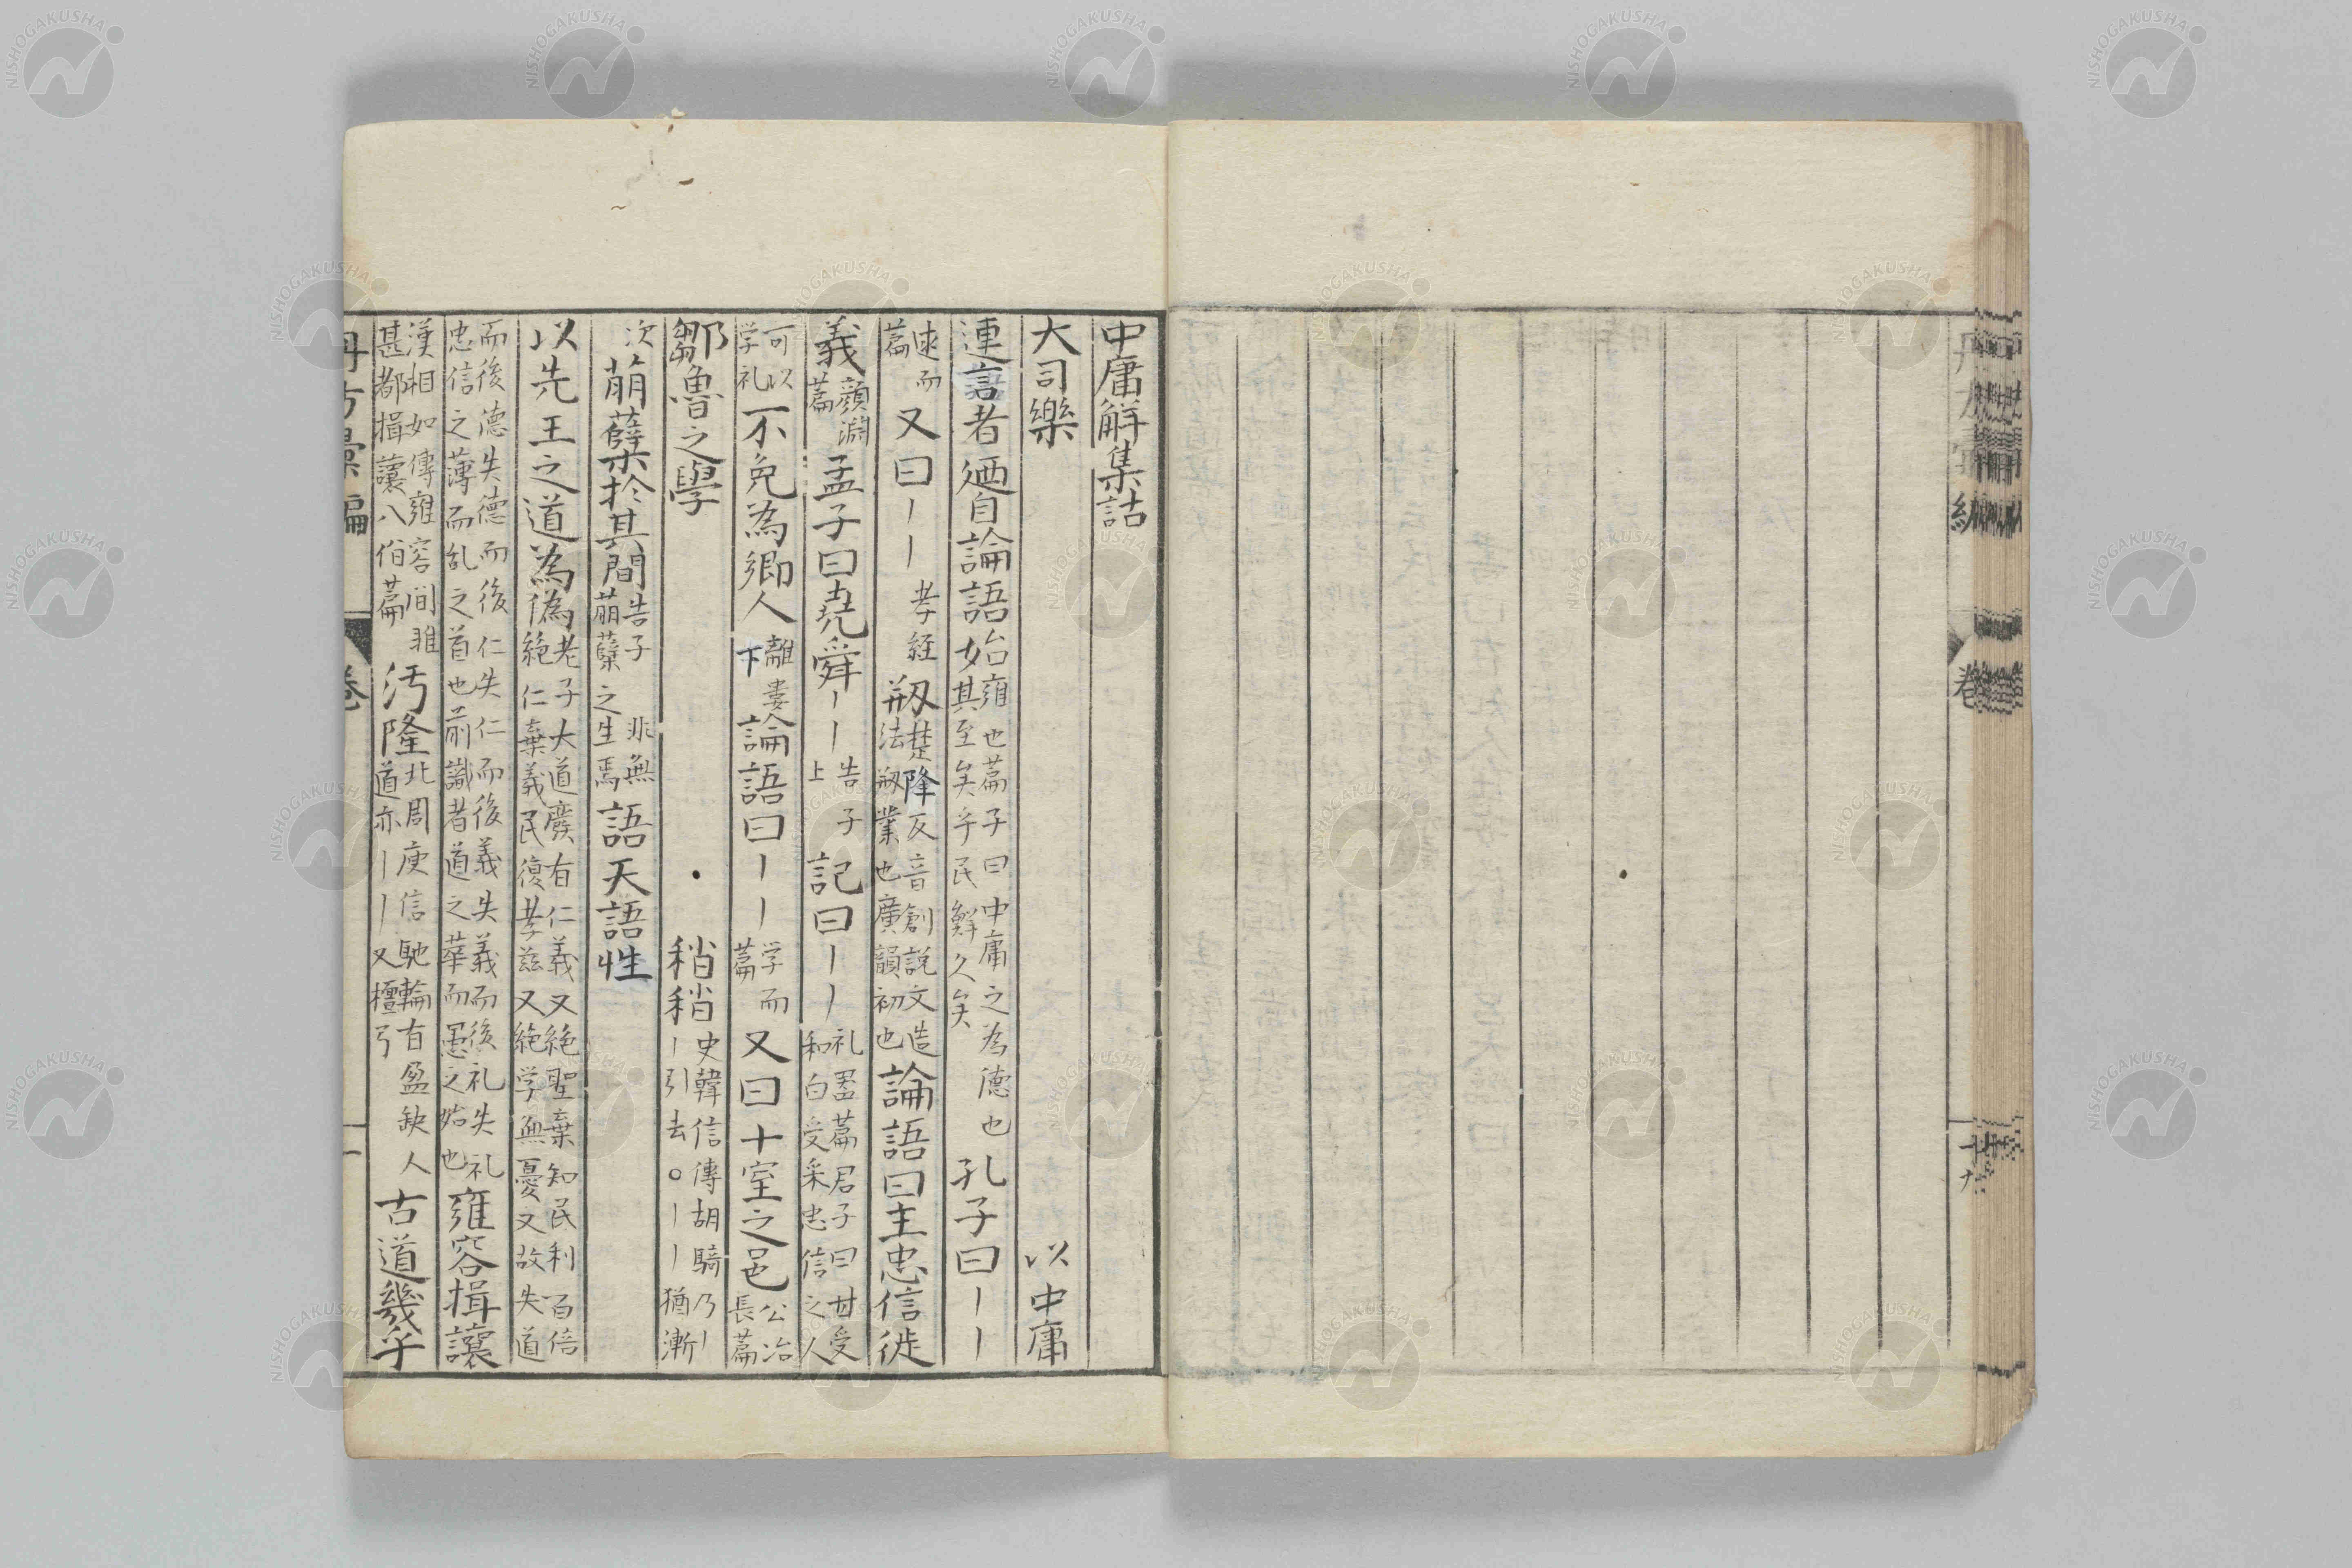 中庸解集詁
大司樂　以中庸
連言者廼自論語始雍也篇子曰中庸之為德也其至矣乎民鮮久矣孔子曰｜｜
述而篇又曰｜｜孝経刱楚降反音創説文造法刱業也廣韻初也論語曰主忠信徙
義顔淵篇孟子曰堯舜｜｜告子上記曰｜｜礼噐篇君子曰甘受和白受采忠信之人
可以学礼不免為鄉人離婁下論語曰｜｜学而篇又曰十室之邑公冶長篇
鄒魯之學　稍稍史韓信傳胡騎乃｜｜引去○｜｜猶漸
次萠蘖於其間告子非無萠蘖之生焉語天語性
以先王之道為偽老子大道廢有仁義又絶聖棄知民利百倍絶仁棄義民復孝茲又絶学無憂又故失道
而後德失德而後仁失仁而後義失義而後礼失礼忠信之薄而乱之首也前識者道之華而愚之始也雍容揖讓
漢相如傳雍容间雅甚都揖讓八佾篇汚隆北周庾信馳輪有盈缺人道亦｜｜又檀弓古道幾乎
卷
NISHOGAKUSHA